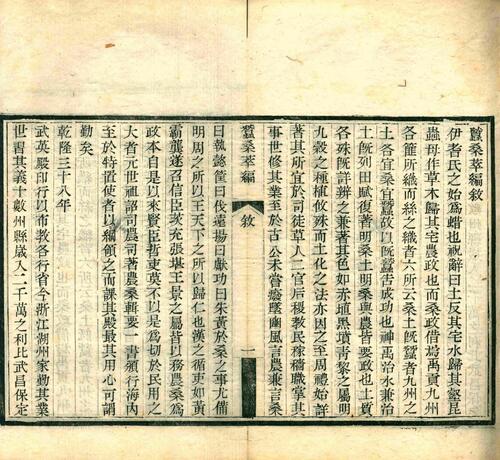 蠶桑萃編敘
伊耆氏之始為蜡也祝辭曰土反其宅水歸其壑昆
蟲毋作草木歸其宅農政也而桑政借焉禹貢九州
各篚所織而絲之織者六所云桑土既蠶者九州之
土各宜桑宜蠶故以既蠶告成功也神禹治水兼治
土既列田賦復著明桑土明桑與農皆要政也土質
各殊既詳辨之兼著其色如赤埴黑墳青黎之屬明
九穀之種植攸殊而土化之法亦因之至周禮始詳
著其所宜於司徒草人二官后稷教民稼穡職掌其
事世修其業至於古公未嘗廢墜豳風言農兼言桑
蠶桑萃編
敘
一
曰執懿筐曰伐遠揚曰獻功曰朱黃於桑之事尤備
明周之所以王天下之所以歸仁也漢之循吏如黃
霸龔遂召信臣茨充張堪王景之屬皆以務農桑為
政本自是以來賢臣哲吏莫不以是為切於民用之
大者元世祖詔司農司著農桑輯要一書頒行海內
至於特置使者以綱領之而課其殿最其用心可謂
勤矣
乾隆三十八年
武英殿印行以布教各行省今浙江湖州家勤其業
世習其義十畝州縣歲入二千萬之利比武昌保定